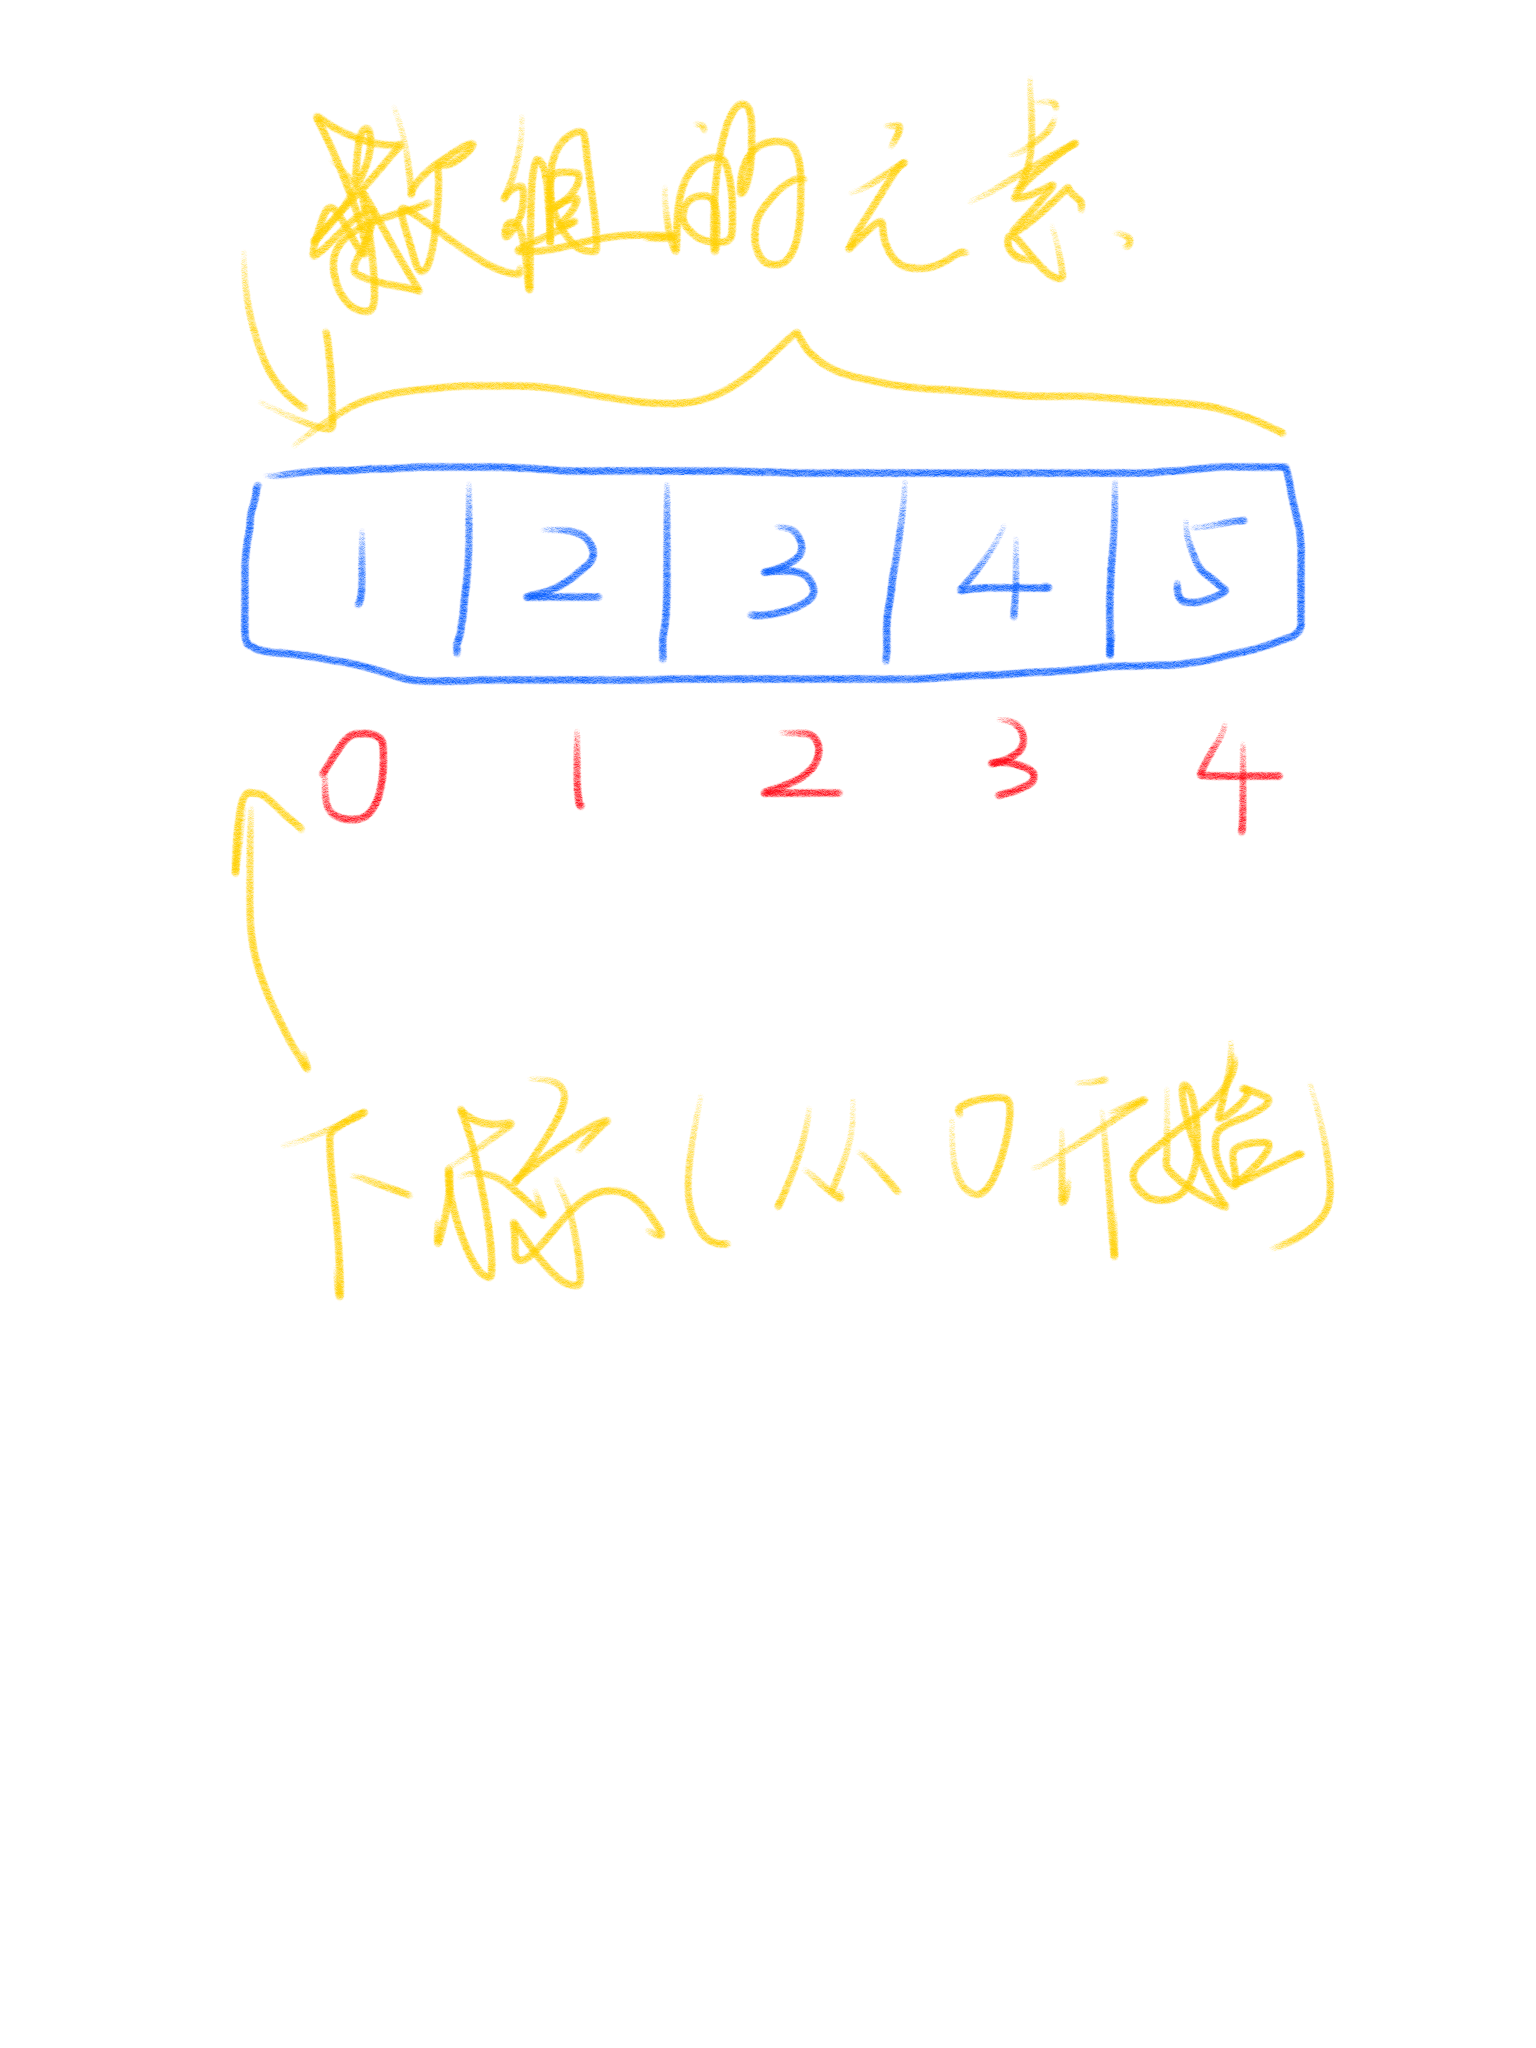 数组的元素.
1 2 3 4 5
0 1 2 3 4
下标(从0开始)